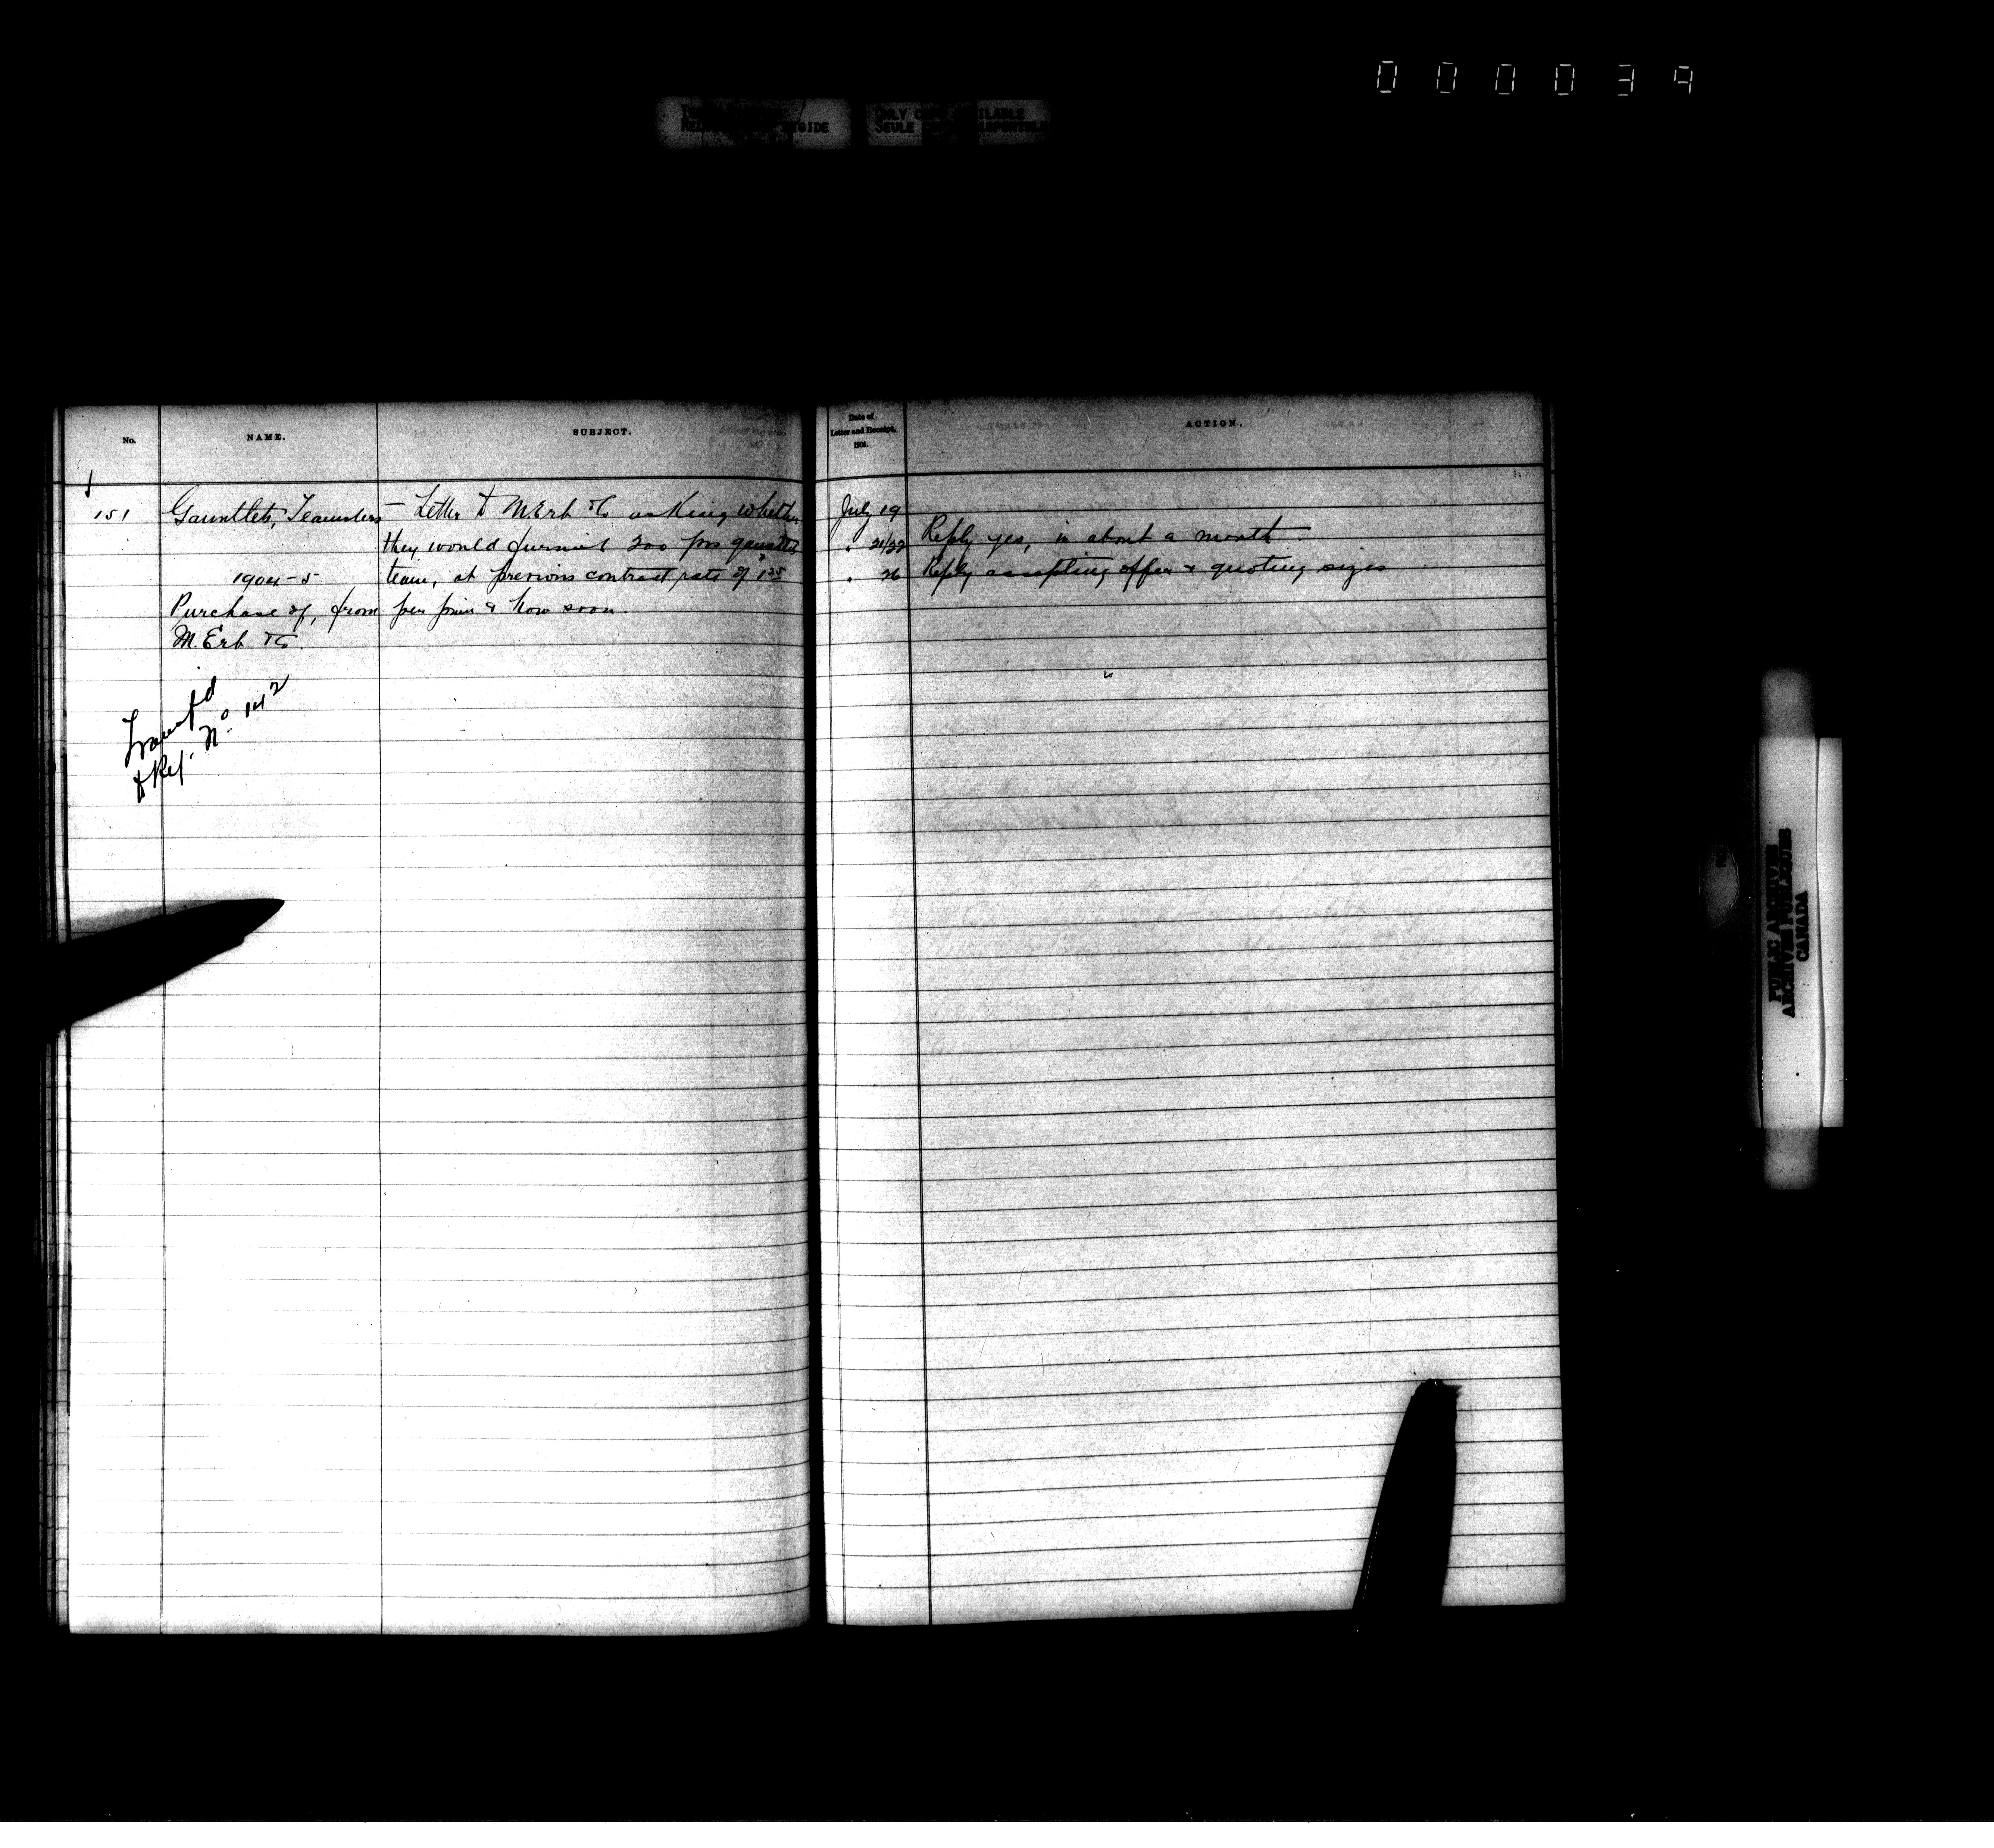 000039
ONLY COPY AVAILABLE
SEULE
No. NAME. SUBJECT. Date of Letter and Receipt. 1904. ACTION.
151 Gauntlets, Teamsters — Letter to M. Erb & Co asking whether July 19
they would furnish 200 prs gauntlets " 21/22 Reply yes, in about a month
1904-5 team, at previous contract rate of 1.25 " 26 Reply accepting offer & quoting sizes
Purchase of, from per pair & how soon.
M. Erb & Co.
Transf'd
to Ref. No 142
PUBLIC ARCHIVES
ARCHIVES PUBLIQUES
CANADA